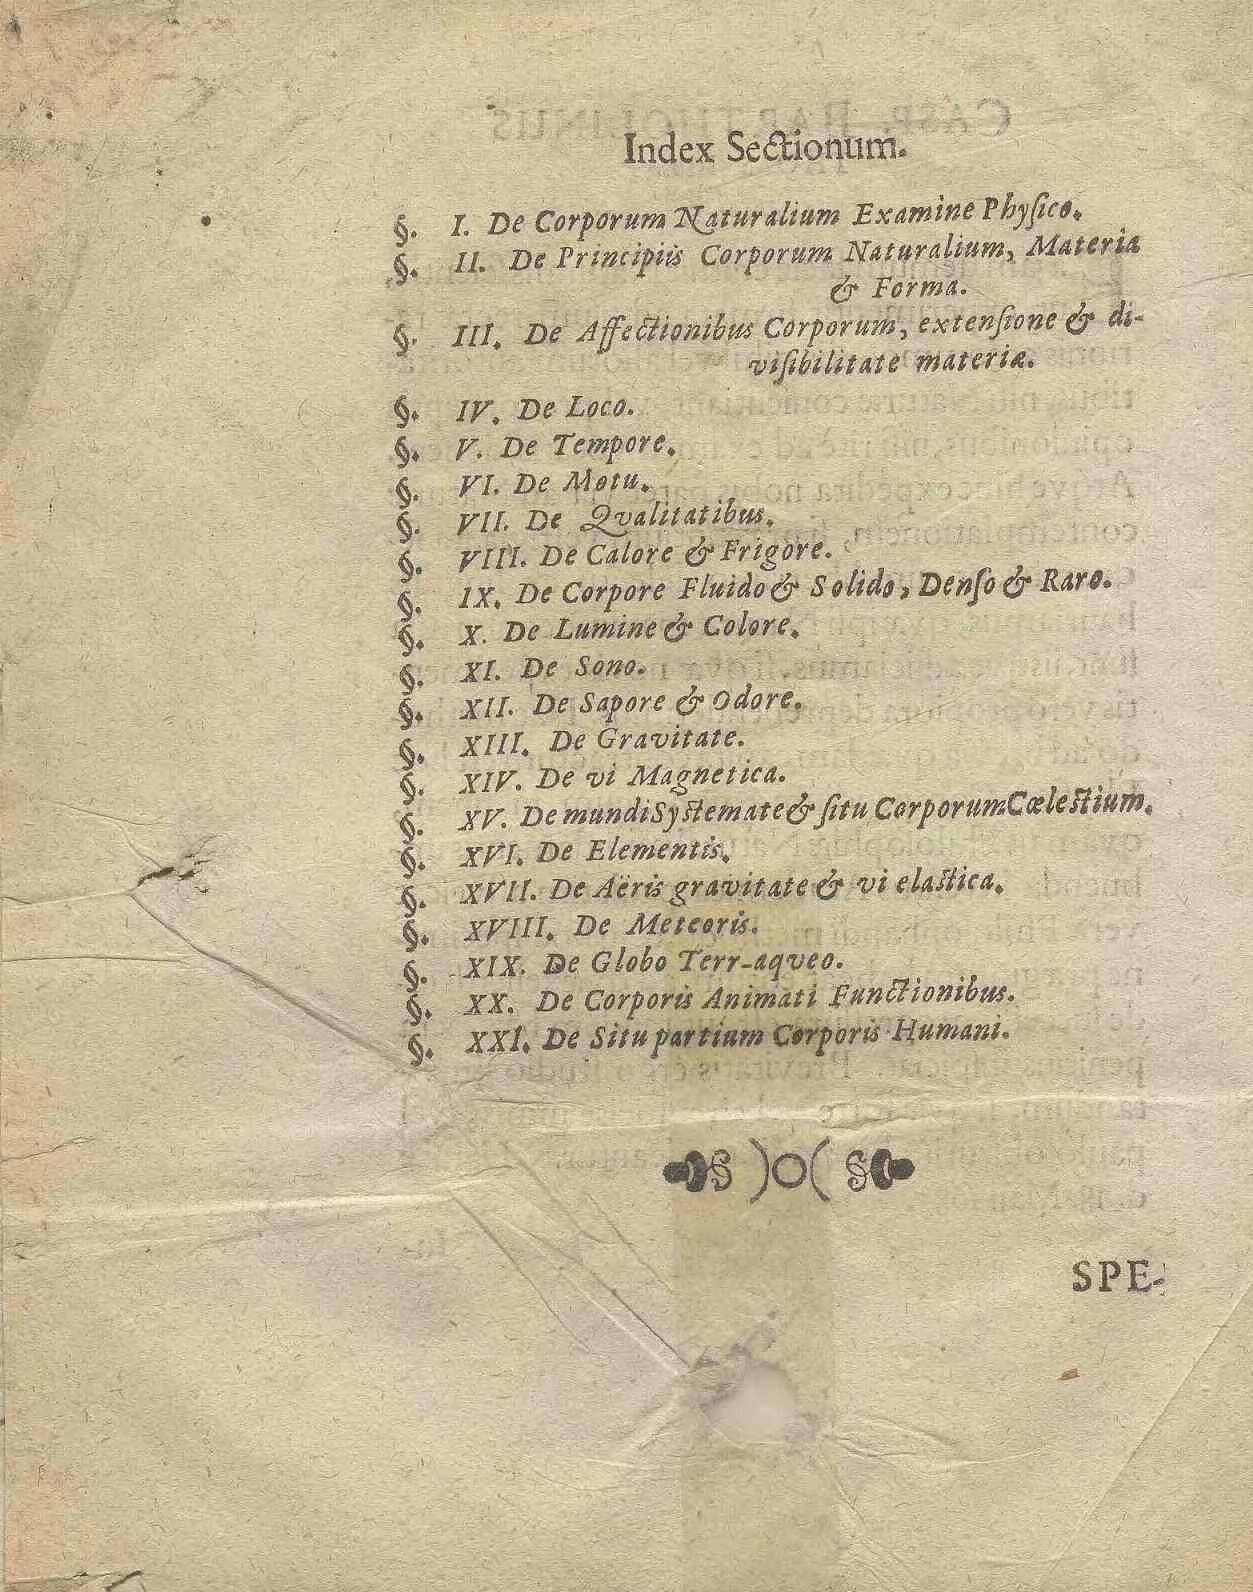 Index Sectionum.
§. I. De Corporum Naturalium Examine Phyſico.
§. II. De Principiis Corporum Naturalium, Materia
& Forma.
§. III. De Affectionibus Corporum, extenſione & di-
viſibilitate materiæ.
§. IV. De Loco.
§. V. De Tempore.
§. VI. De Motu.
§. VII. De Qvalitatibus.
§. VIII. De Calore & Frigore.
§. IX. De Corpore Fluido & Solido, Denſo & Raro.
§. X. De Lumine & Colore.
§. XI. De Sono.
§. XII. De Sapore & Odore.
§. XIII. De Gravitate.
§. XIV. De vi Magnetica.
§. XV. De mundi Syſtemate & ſitu Corporum Cœleſtium.
§. XVI. De Elementis.
§. XVII. De Aëris gravitate & vi elaſtica.
§. XVIII. De Meteoris.
§. XIX. De Globo Terr-aqveo.
§. XX. De Corporis Animati Functionibus.
§. XXI. De Situ partium Corporis Humani.
§ )O( §
SPE-